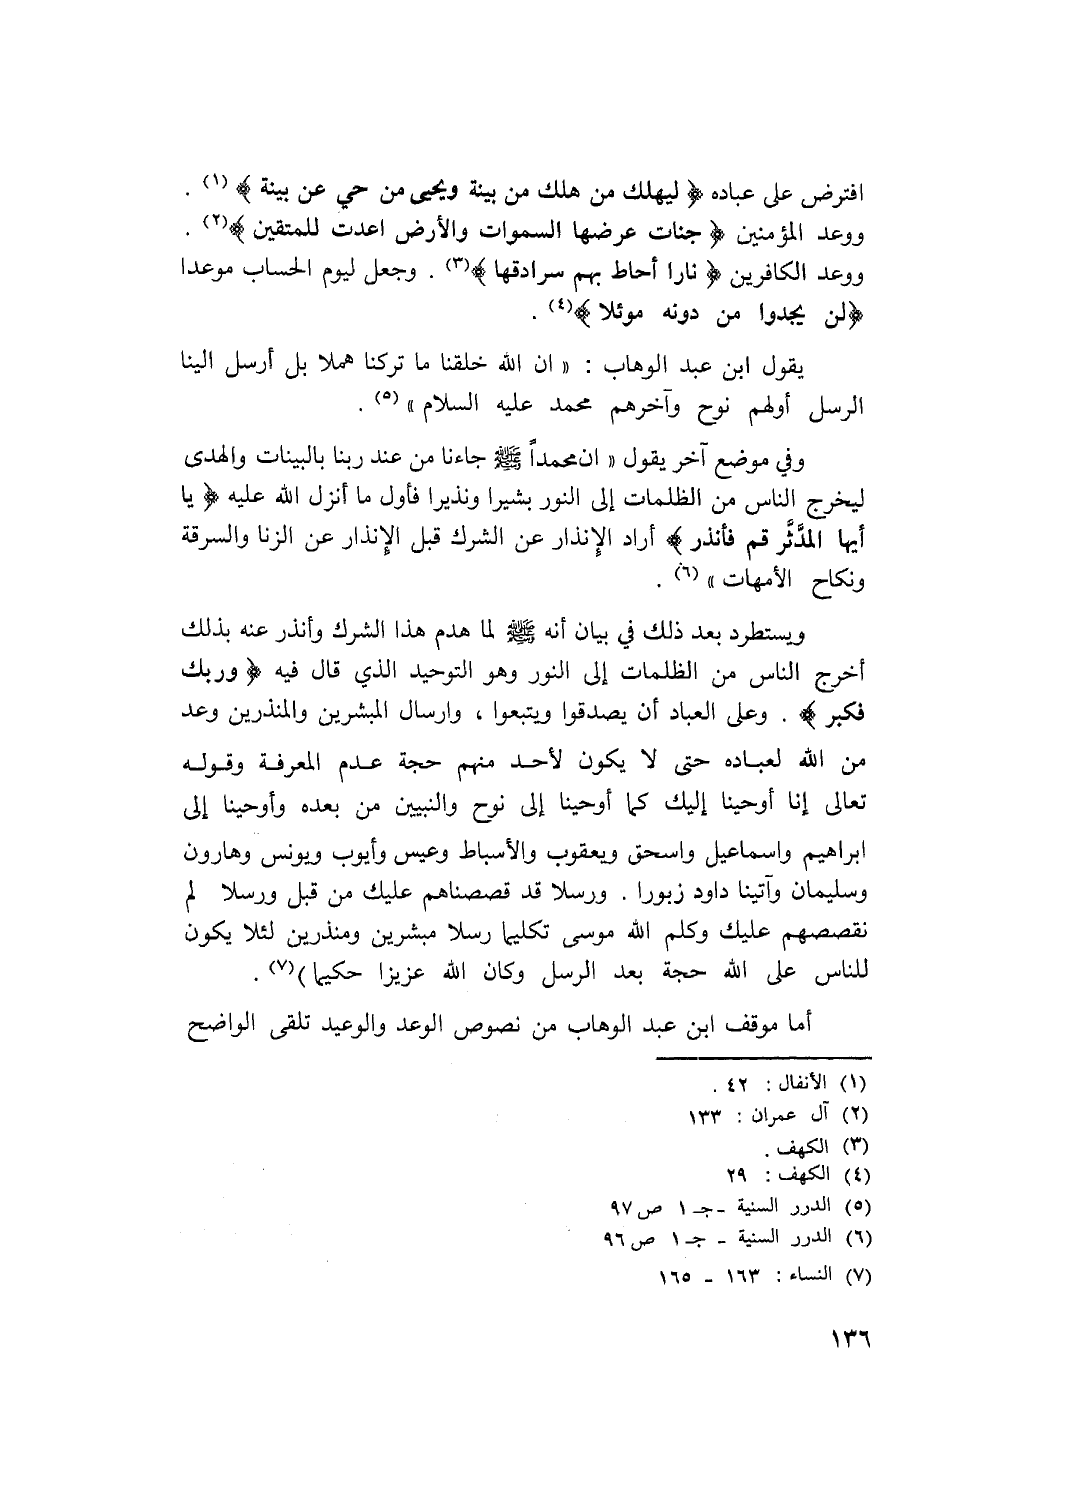 افترض على عباده ﴿ ليهلك من هلك من بينة ويحيى من حي عن بينة ﴾ (١) .
ووعد المؤمنين ﴿ جنات عرضها السموات والأرض اعدت للمتقين ﴾(٢) .
ووعد الكافرين ﴿ نارا أحاط بهم سرادقها ﴾(٣) . وجعل ليوم الحساب موعدا
﴿لن يجدوا من دونه موئلا ﴾(٤) .
يقول ابن عبد الوهاب : « ان الله خلقنا ما تركنا هملا بل أرسل الينا
الرسل أولهم نوح وآخرهم محمد عليه السلام » (٥) .
وفي موضع آخر يقول « ان محمداً ﷺ جاءنا من عند ربنا بالبينات والهدى
ليخرج الناس من الظلمات إلى النور بشيرا ونذيرا فأول ما أنزل الله عليه ﴿ يا
أيها المدَّثَّر قم فأنذر ﴾ أراد الإنذار عن الشرك قبل الإنذار عن الزنا والسرقة
ونكاح الأمهات » (٦) .
ويستطرد بعد ذلك في بيان أنه ﷺ لما هدم هذا الشرك وأنذر عنه بذلك
أخرج الناس من الظلمات إلى النور وهو التوحيد الذي قال فيه ﴿ وربك
فكبر ﴾ . وعلى العباد أن يصدقوا ويتبعوا ، وارسال المبشرين والمنذرين وعد
من الله لعباده حتى لا يكون لأحد منهم حجة عدم المعرفة وقوله
تعالى إنا أوحينا إليك كما أوحينا إلى نوح والنبيين من بعده وأوحينا إلى
ابراهيم واسماعيل واسحق ويعقوب والأسباط وعيس وأيوب ويونس وهارون
وسليمان وآتينا داود زبورا . ورسلا قد قصصناهم عليك من قبل ورسلا لم
نقصصهم عليك وكلم الله موسى تكليما رسلا مبشرين ومنذرين لئلا يكون
للناس على الله حجة بعد الرسل وكان الله عزيزا حكيما )(٧) .
أما موقف ابن عبد الوهاب من نصوص الوعد والوعيد تلقى الواضح
(١) الأنفال : ٤٢ .
(٢) آل عمران : ١٣٣
(٣) الكهف .
(٤) الكهف : ٢٩
(٥) الدرر السنية - جـ ١ ص ٩٧
(٦) الدرر السنية - جـ ١ ص ٩٦
(٧) النساء : ١٦٣ - ١٦٥
١٣٦